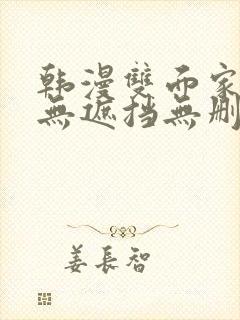 韩漫雙面家
無遮挡無刪
姜長智